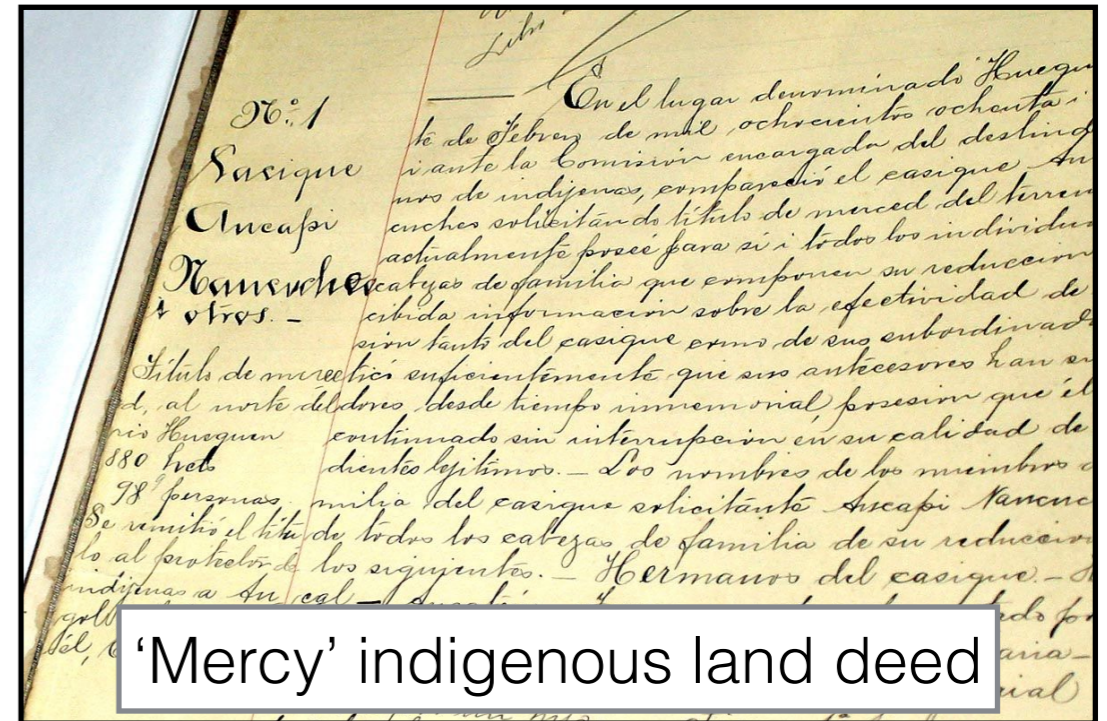 Libro
No. 1
Cacique
Ancapi
Nancucheo
i otros. -
Título de merce
d, al norte del
rio Huequen
880 hets
98 personas.
Se remitió el títu
lo al protector de
indíjenas a An
él,
En el lugar denominado Huequ
te de Febrero de mil ochocientos ochenta i
i ante la Comisión encargada del deslind
nos de indíjenas, compareció el casique An
cucheo solicitándo título de merced del terren
actualmente posee para sí i todos los individuo
cabezas de familia que componen su reduccion
cibida informacion sobre la efectividad de
sion tanto del casique como de sus subordinad
tició suficientemente que sus antecesores han s
dores, desde tiempo inmemorial, posesion que él
continuado sin interrupcion en su calidad de
dientes lejítimos. - Los nombres de los miembros
milia del casique solicitante Ancapi Nancuc
de todos los cabezas de familia de su reduccion
los siguientes. - Hermanos del casique. -
cal -
ado por
aria-
ial
‘Mercy’ indigenous land deed